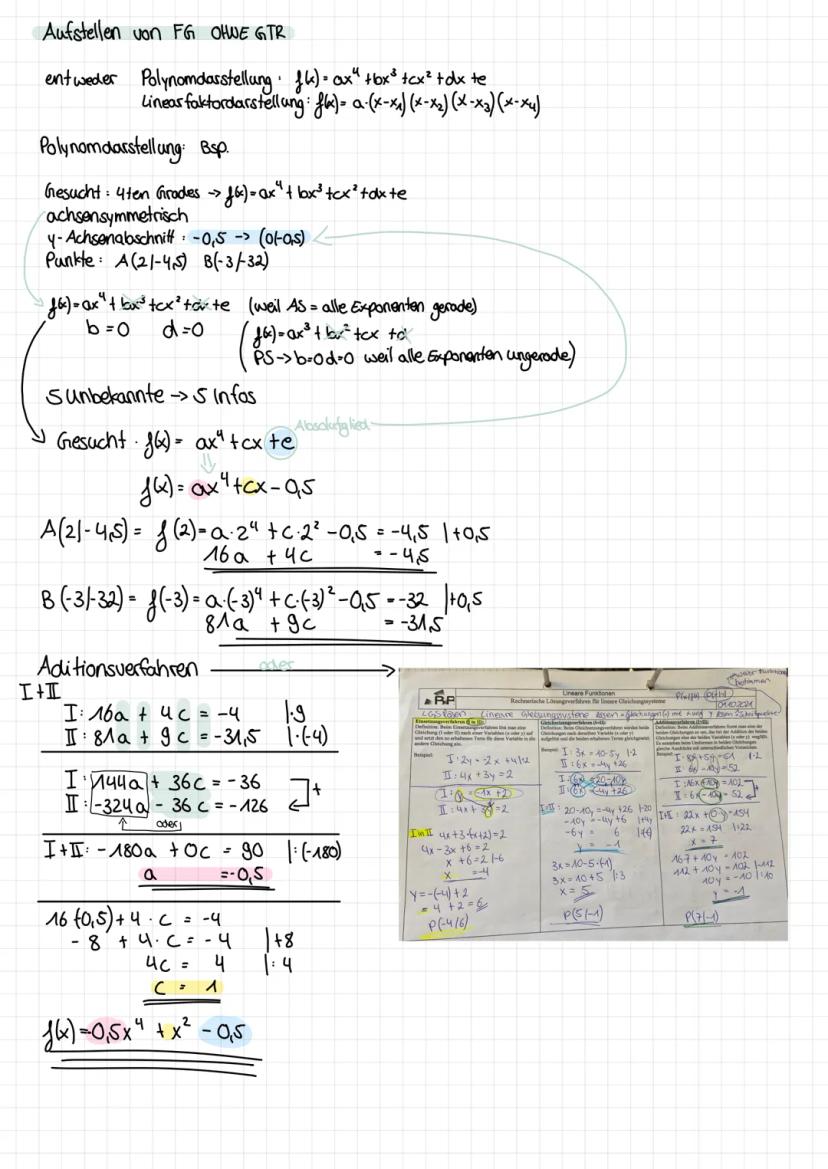 Aufstellen von FG OHNE GTR
entweder Polynomdarstellung: f(x) = ax⁴ + bx³ + cx² + dx + e
Linearfaktordarstellung: f(x) = a·(x-x₁)(x-x₂)(x-x₃)(x-x₄)
Polynomdarstellung: Bsp.
Gesucht: 4ten Grades -> f(x) = ax⁴ + bx³ + cx² + dx + e
achsensymmetrisch
y-Achsenabschnitt: -0,5 -> (0|-0,5)
Punkte: A(2|-4,5) B(-3|-32)
f(x) = ax⁴ + bx³ + cx² + dx + e (weil AS = alle Exponenten gerade)
b=0 d=0
(f(x) = ax³ + bx² + cx + d
PS -> b=0 d=0 weil alle Exponenten ungerade)
5 unbekannte -> 5 Infos
Absolutglied
Gesucht: f(x) = ax⁴ + cx + e
f(x) = ax⁴ + cx - 0,5
A(2|-4,5) = f(2) = a·2⁴ + c·2² - 0,5 = -4,5 |+0,5
16a + 4c = -4,5
B(-3|-32) = f(-3) = a·(-3)⁴ + c·(-3)² - 0,5 = -32 |+0,5
81a + 9c = -31,5
Aditionsverfahren oder
I+II
I: 16a + 4c = -4 |·9
II: 81a + 9c = -31,5 |·(-4)
I: 144a + 36c = -36
II: -324a - 36c = -126 +
oder
I+II: -180a + 0c = 90 |:(-180)
a = -0,5
16·(-0,5) + 4·c = -4
-8 + 4·c = -4 |+8
4c = 4 |:4
c = 1
f(x) = -0,5x⁴ + x² - 0,5
Lineare Funktionen
Rechnerische Lösungsverfahren für lineare Gleichungssysteme
Beispiel:
I: 2y = -2x + 4 |:2
II: 4x + 3y = 2
I: y = -1x + 2
II: 4x + 3y = 2
I in II 4x + 3·(-x+2) = 2
4x - 3x + 6 = 2
x + 6 = 2 |-6
x = -4
y = -(-4) + 2
= 4 + 2 = 6
P(-4/6)
Beispiel: I: 3x = 10-5y |·2
II: 6x = -4y + 26
I: 6x = 20-10y
II: 6x = -4y + 26
I=II: 20-10y = -4y + 26 |-20
-10y = -4y + 6 |+4y
-6y = 6
y = -1
3x = 10-5·(-1)
3x = 10+5 |:3
x = 5
P(5/-1)
I: 8x + 5y = 51 |·2
II: 6x - 10y = 52
I: 16x + 10y = 102
II: 6x - 10y = 52
I+II: 22x + 0·y = 154
22x = 154 |:22
x = 7
16·7 + 10y = 102
112 + 10y = 102 |-112
10y = -10 |:10
y = -1
P(7/-1)